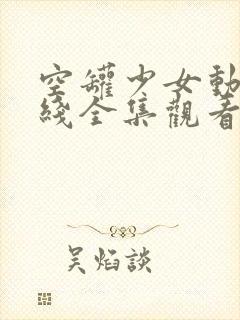 空罐少女動
綫全集觀看
吴焰談